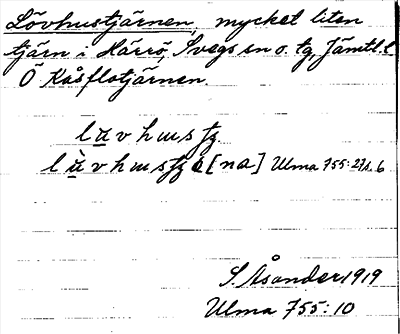 Lövhustjärnen, mycket liten
tjärn i Härrö, Svegs sn o. tg, Jämtl. l
Ö Kåsflotjärnen.
Ulma 755:27 s. 6
S. Åsander 1919
Ulma 755:10